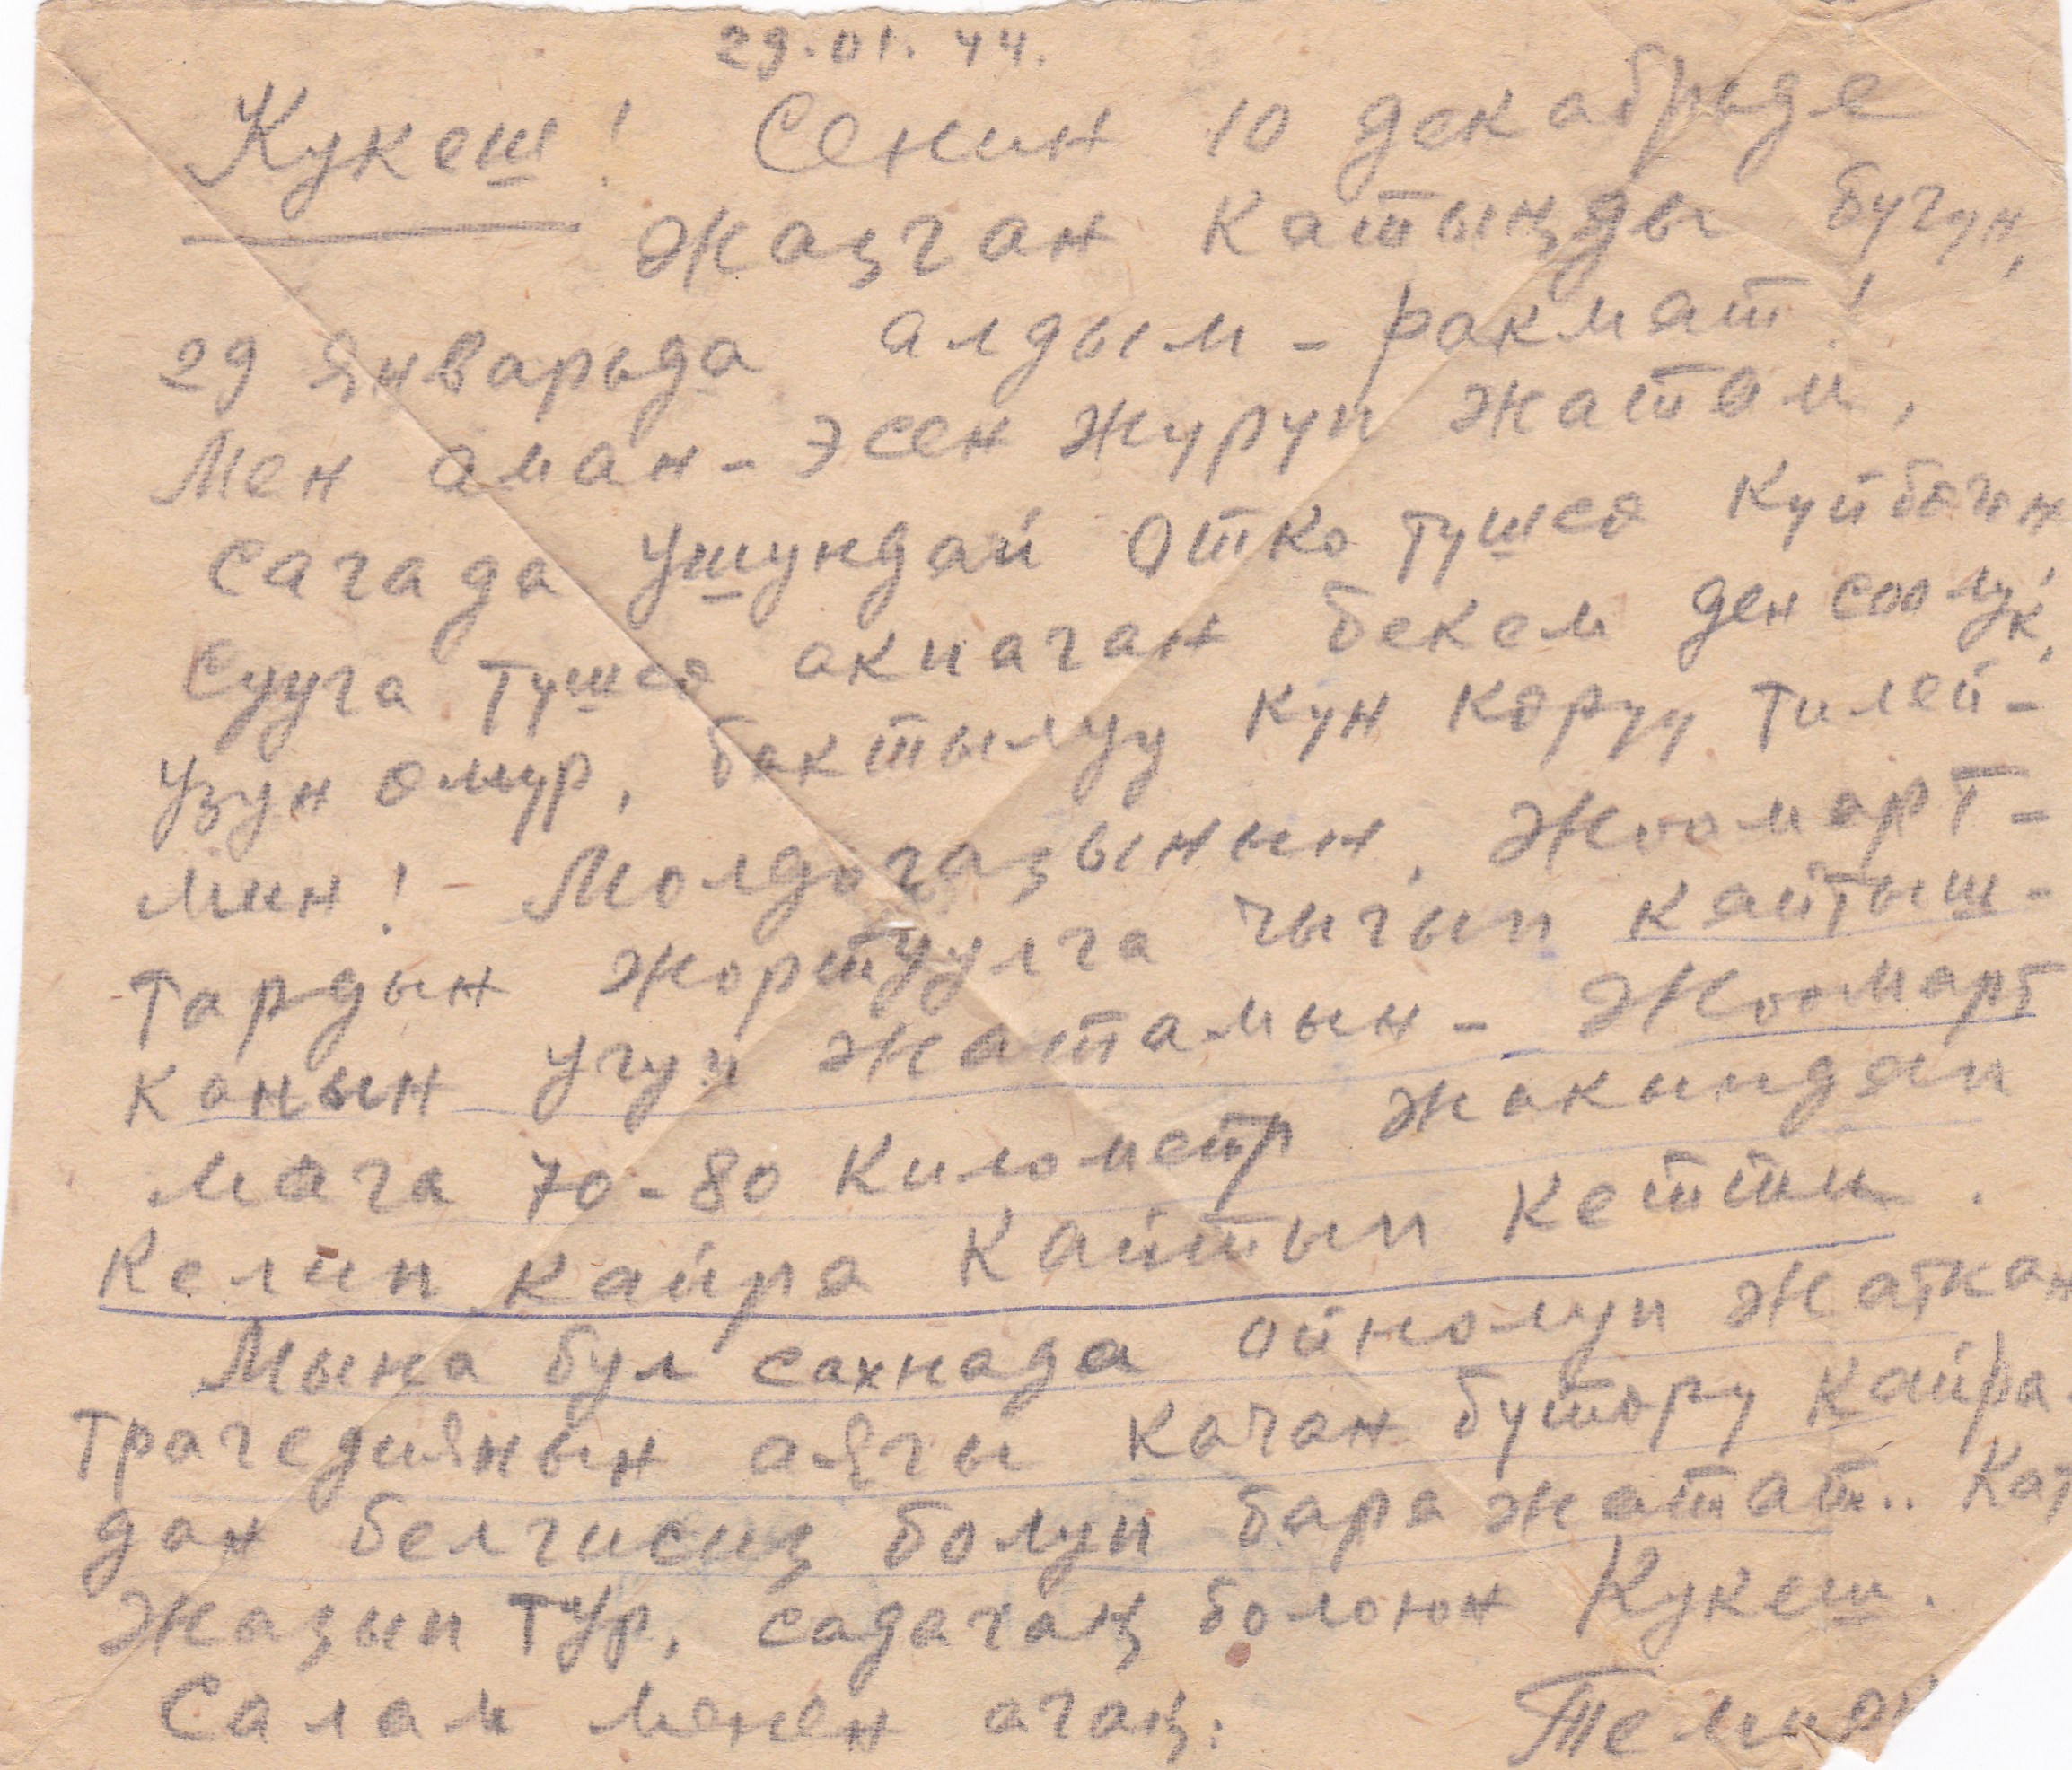 29.01.44.
Кукеш! Сенин 10 декабрьде
жазган катыңды бугун,
29 январьда алдым - ракмат!
Мен аман-эсен журуп жатам,
сагада ушундай отко тушсө куйбөгөн
сууга тушсө акпаган бекем ден соолук,
узун өмур, бактылуу кун көруу тилей-
мин! Молдогазынын, Жоомарт-
тардын жортуулга чыгып кайтыш-
канын угуп жатамын - Жоомарт
мага 70-80 километр жакындап
келип кайра кайтып кетти.
Мына бул сахнада ойнолуп жаткан
трагедиянын аягы качан бутөру кайра
дан белгисиз болуп бара жатат.. Кат
жазып тур, садагаң болоюн Кукеш.
Салам менен агаң: